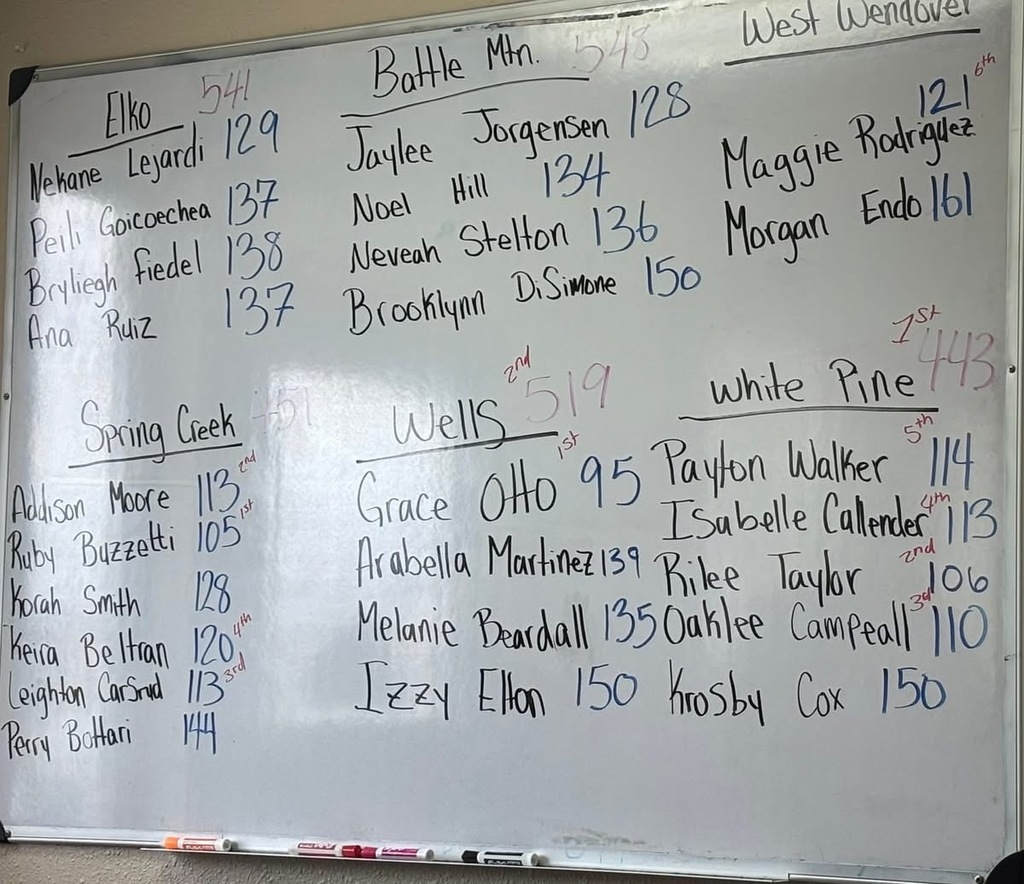 Elko 541
Nekane Lejardi 129
Peili Goicoechea 137
Bryliegh Fiedel 138
Ana Ruiz 137
Battle Mtn. 548
Jaylee Jorgensen 128
Noel Hill 134
Neveah Stelton 136
Brooklynn DiSimone 150
West Wendover
121 6th
Maggie Rodriguez
Morgan Endo 161
Spring Creek 451
Addison Moore 113 2nd
Ruby Buzzetti 105 1st
Korah Smith 128
Keira Beltran 120 4th
Leighton Carsrud 113 3rd
Perry Bottari 144
2nd
Wells 519
1st
Grace Otto 95
Arabella Martinez 139
Melanie Beardall 135
Izzy Elton 150
1st
White Pine 443
5th
Payton Walker 114
4th
Isabelle Callender 113
2nd
Rilee Taylor 106
3rd
Oaklee Campeall 110
Krosby Cox 150